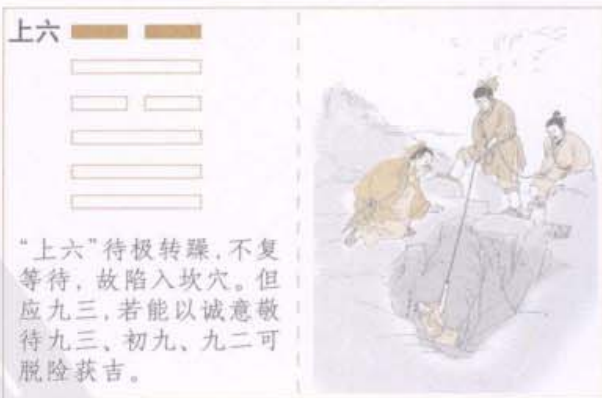 上六
“上六”待极转躁，不复
等待，故陷入坎穴。但
应九三，若能以诚意敬
待九三、初九、九二可
脱险获吉。